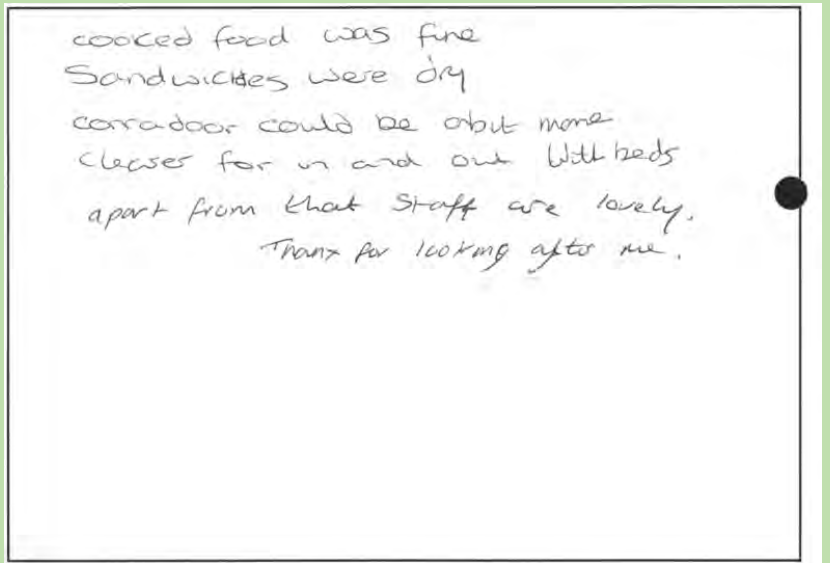 cooked food was fine
Sandwiches were dry
corradoor could be abit more
cleaser for in and out With beds
apart from that Staff are lovely.
Thanx for looking after me.